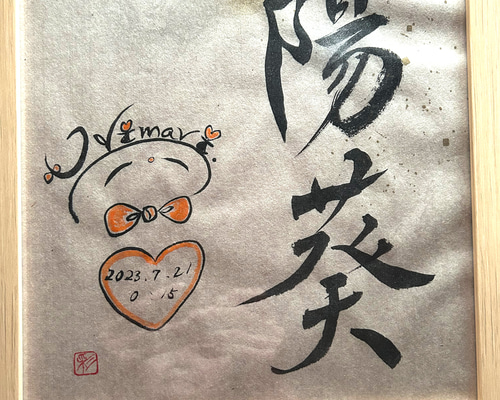 陽葵
Himari
2023.7.21
0:15